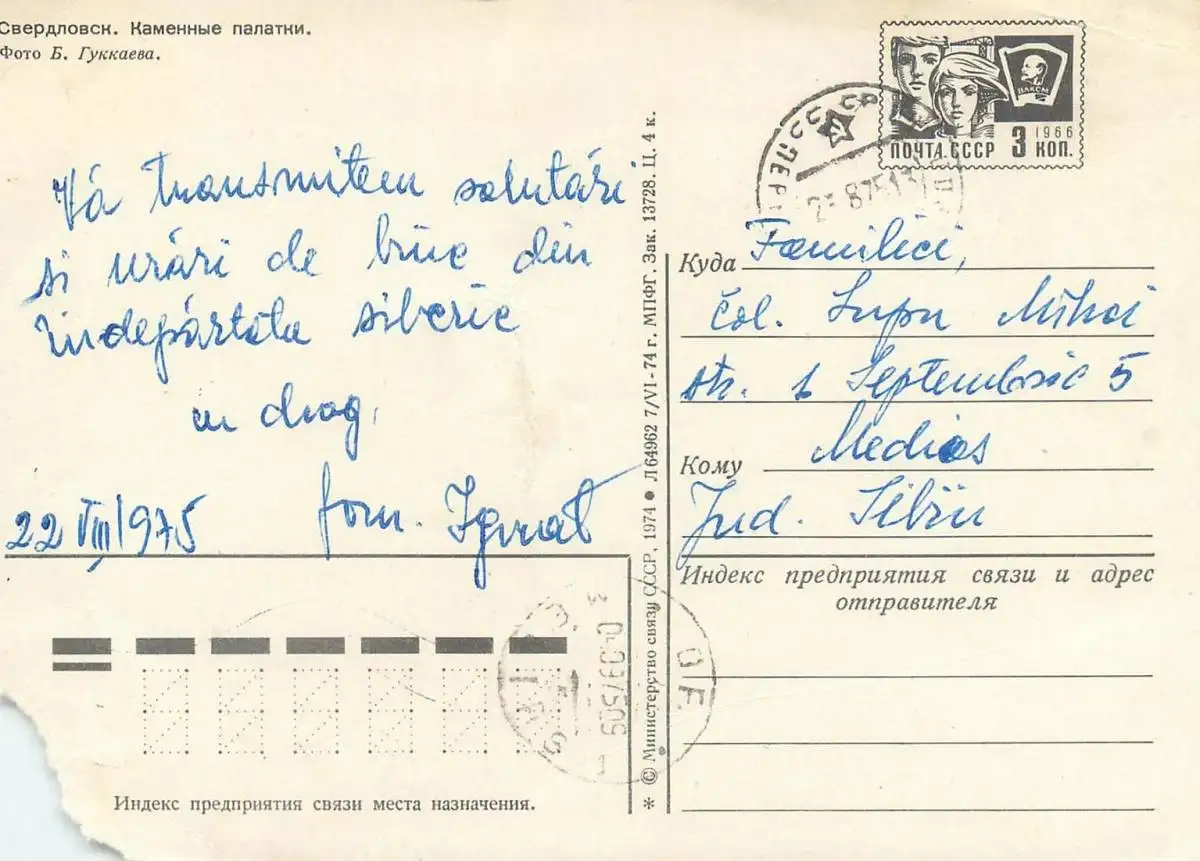 Свердловск. Каменные палатки.
Фото Б. Гуккаева.
ВЛКСМ
1966
ПОЧТА СССР 3 КОП.
Vă transmitem salutări
si urări de bine din
îndepărtata siberie
cu drag,
22 VIII/1975 fam. Ignat
* © Министерство связи СССР, 1974 ● Л 64962 7/VI-74 г. МПФГ. Зак. 13728. Ц. 4 к.
Куда Familiei,
Col. Lupu Mihai
str. 1 Septembrie 5
Кому Medias
Jud. Sibiu
Индекс предприятия связи и адрес
отправителя
Индекс предприятия связи места назначения.